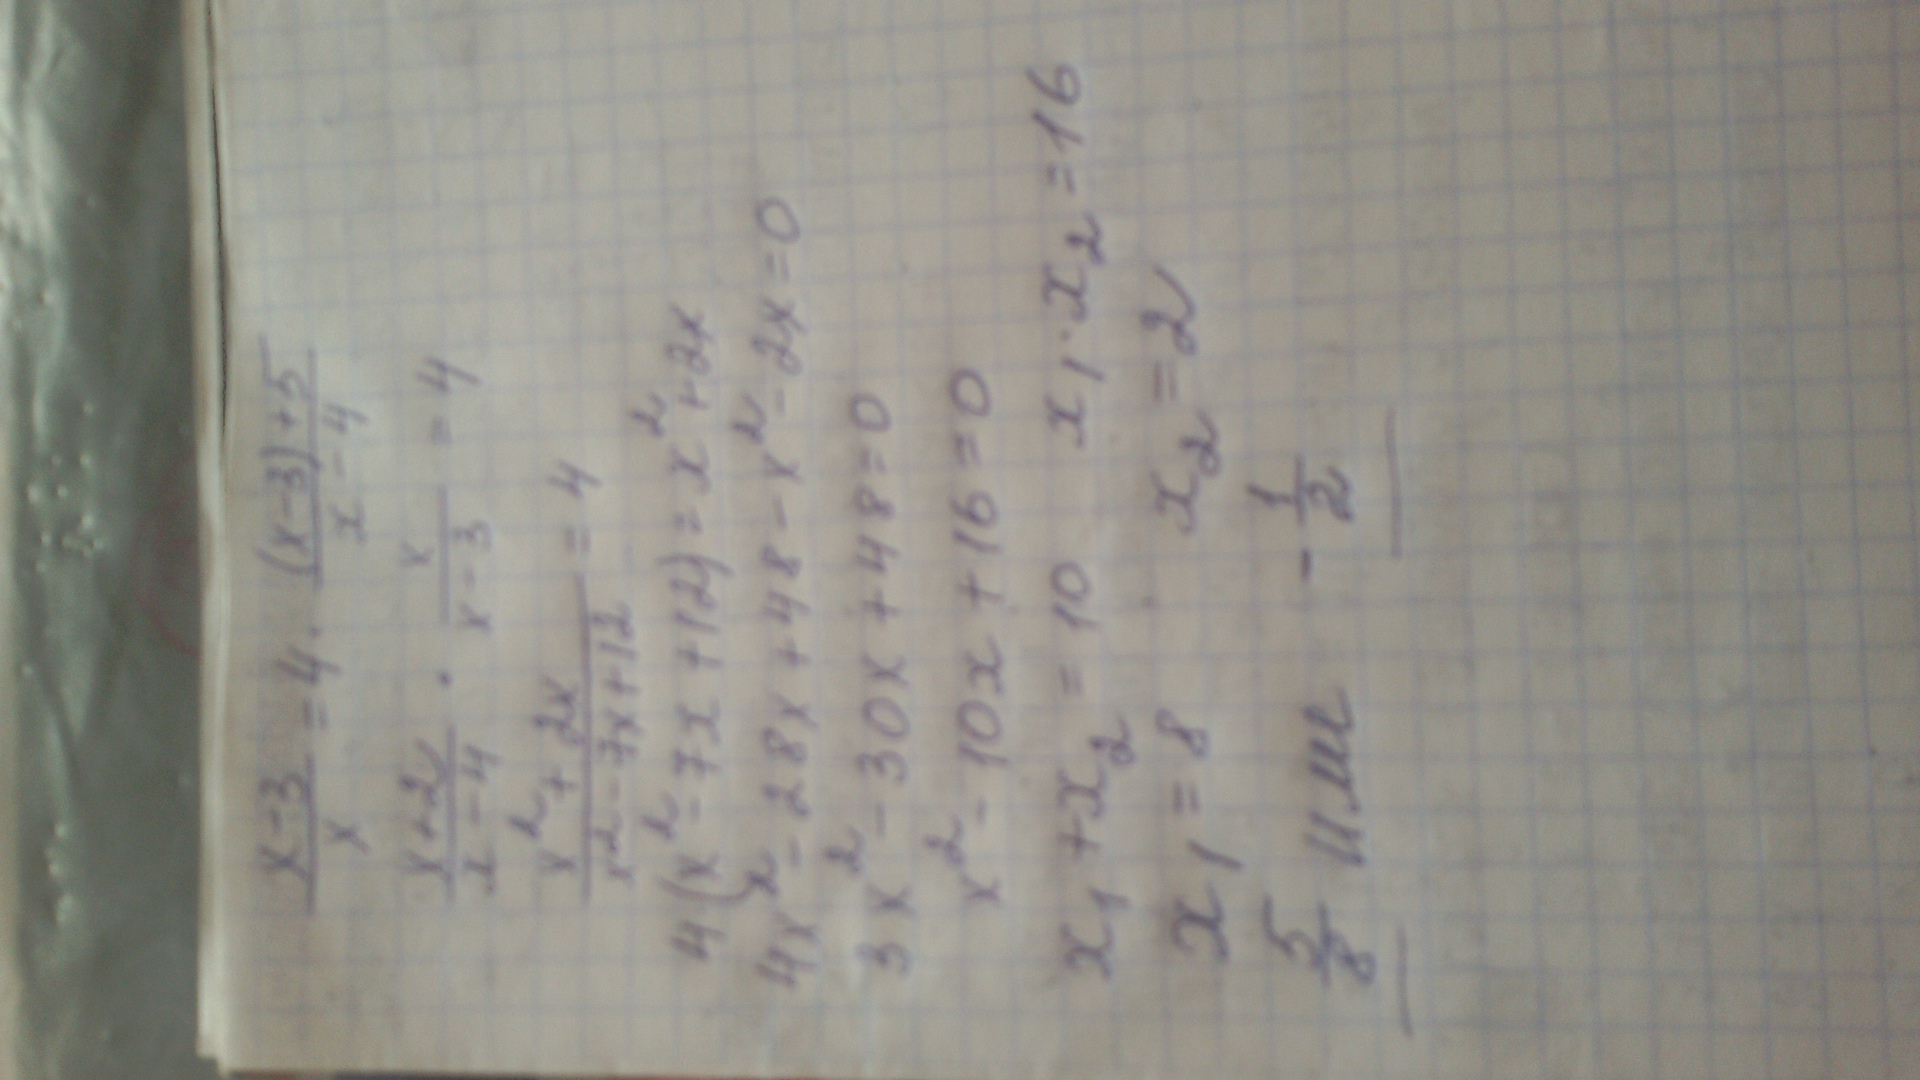 (x-3)/x = 4 · ((x-3)+5)/(x-4)
(x+2)/(x-4) · x/(x-3) = 4
(x²+2x)/(x²-7x+12) = 4
4(x²-7x+12)=x²+2x
4x²-28x+48-x²-2x=0
3x²-30x+48=0
x²-10x+16=0
x₁+x₂=10 x₁·x₂=16
x₁=8 x₂=2
5/8 или -1/2